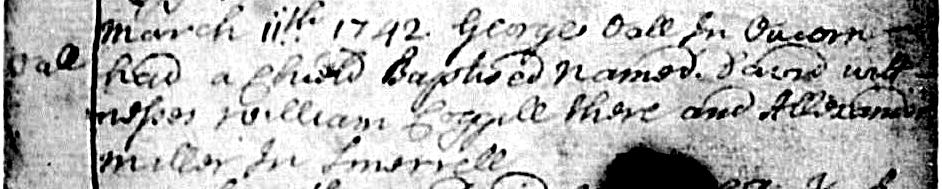 March 11th 1742 George Dall In Oucorn
Dall
had a Chield Baptised Named David witt
nesses William Coggill there and Allexander
Miller In Smerrell